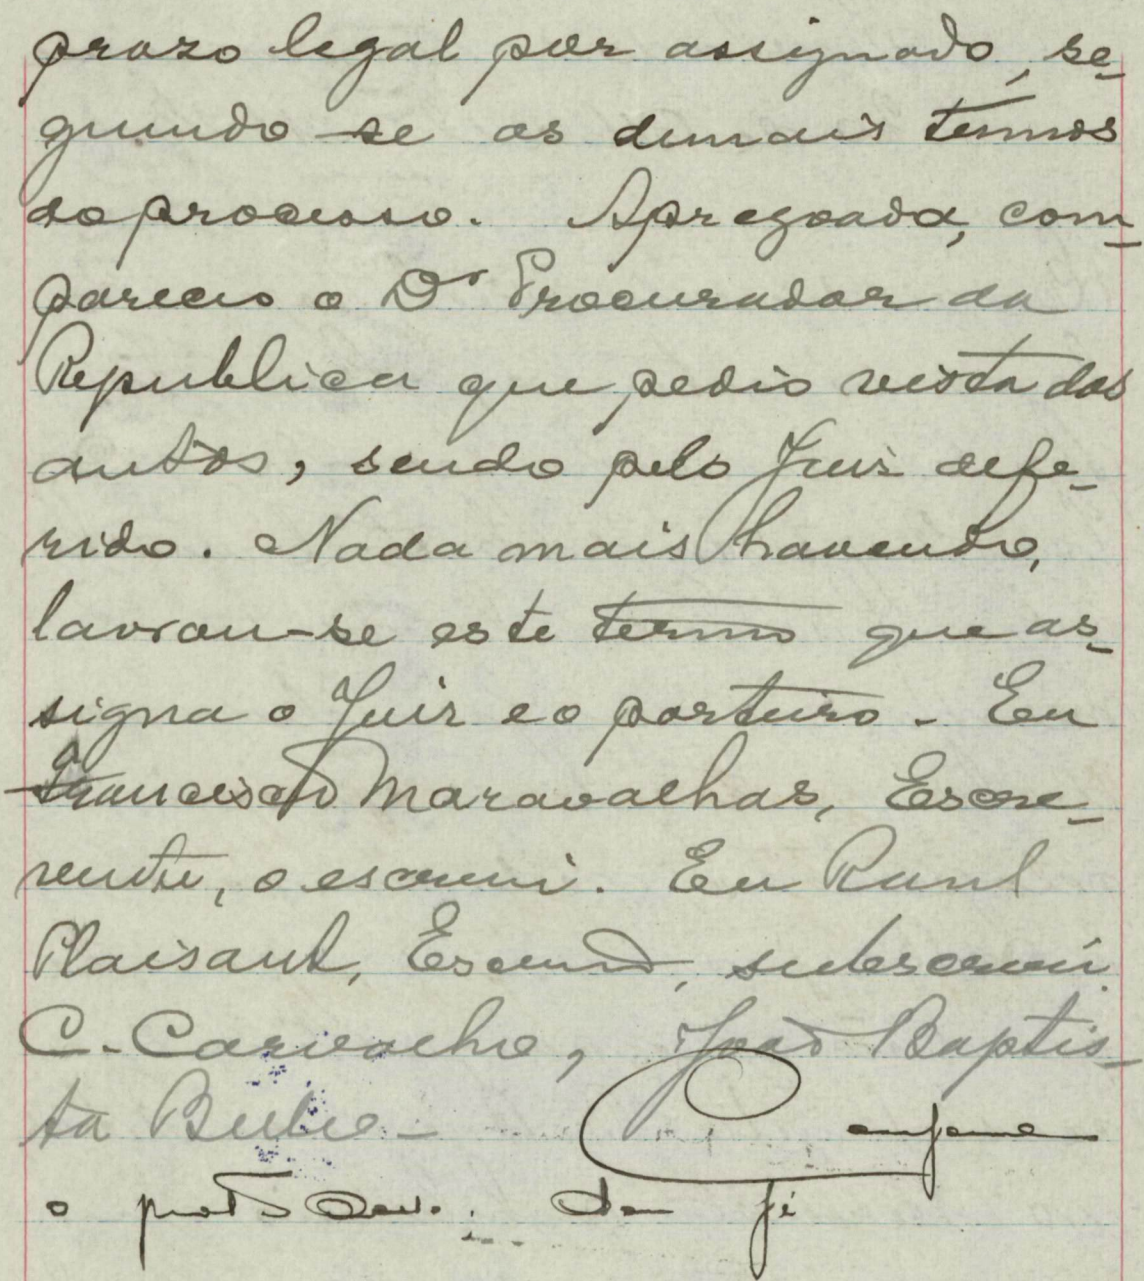 prazo legal por assignado, se-
guindo-se os demais termos
do processo. Apregoada, com-
pareceo o Dr Procurador da
Republica que pedio vista dos
autos, sendo pelo Juiz defe-
rido. Nada mais havendo,
lavrou-se este termo que as-
signa o Juiz e o porteiro. Eu
Francisco Maravalhas, Escre-
vente, o escrevi. Eu Raul
Plaisant, Escrivão, subscrevi.
C. Carvalho, João Baptis-
ta Bube-
Confere
o dou fé